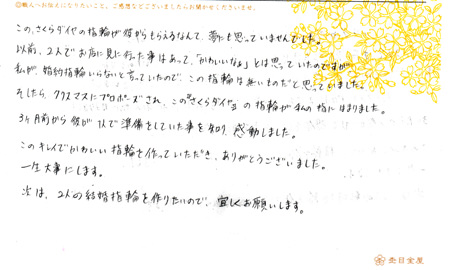 ◎職人へお伝えになりたいこと、ご感想などございましたらお聞かせくださいませ。
この、さくらダイヤの指輪が彼からもらえるなんて、夢にも思っていませんでした。
以前、2人でお店に見に行った事はあって、「かわいいなぁ」とは思っていたのですが
私が、婚約指輪いらないと言っていたので、この指輪は無いものだと思っていました。
そしたら、クリスマスにプロポーズされ、この"さくらダイヤ"の指輪が私の指にはまりました。
3ヶ月前から彼が1人で準備をしていた事を知り、感動しました。
このキレイでかわいい指輪を作っていただき、ありがとうございました。
一生大事にします。
次は、2人の結婚指輪を作りたいので、宜しくお願いします。
杢目金屋